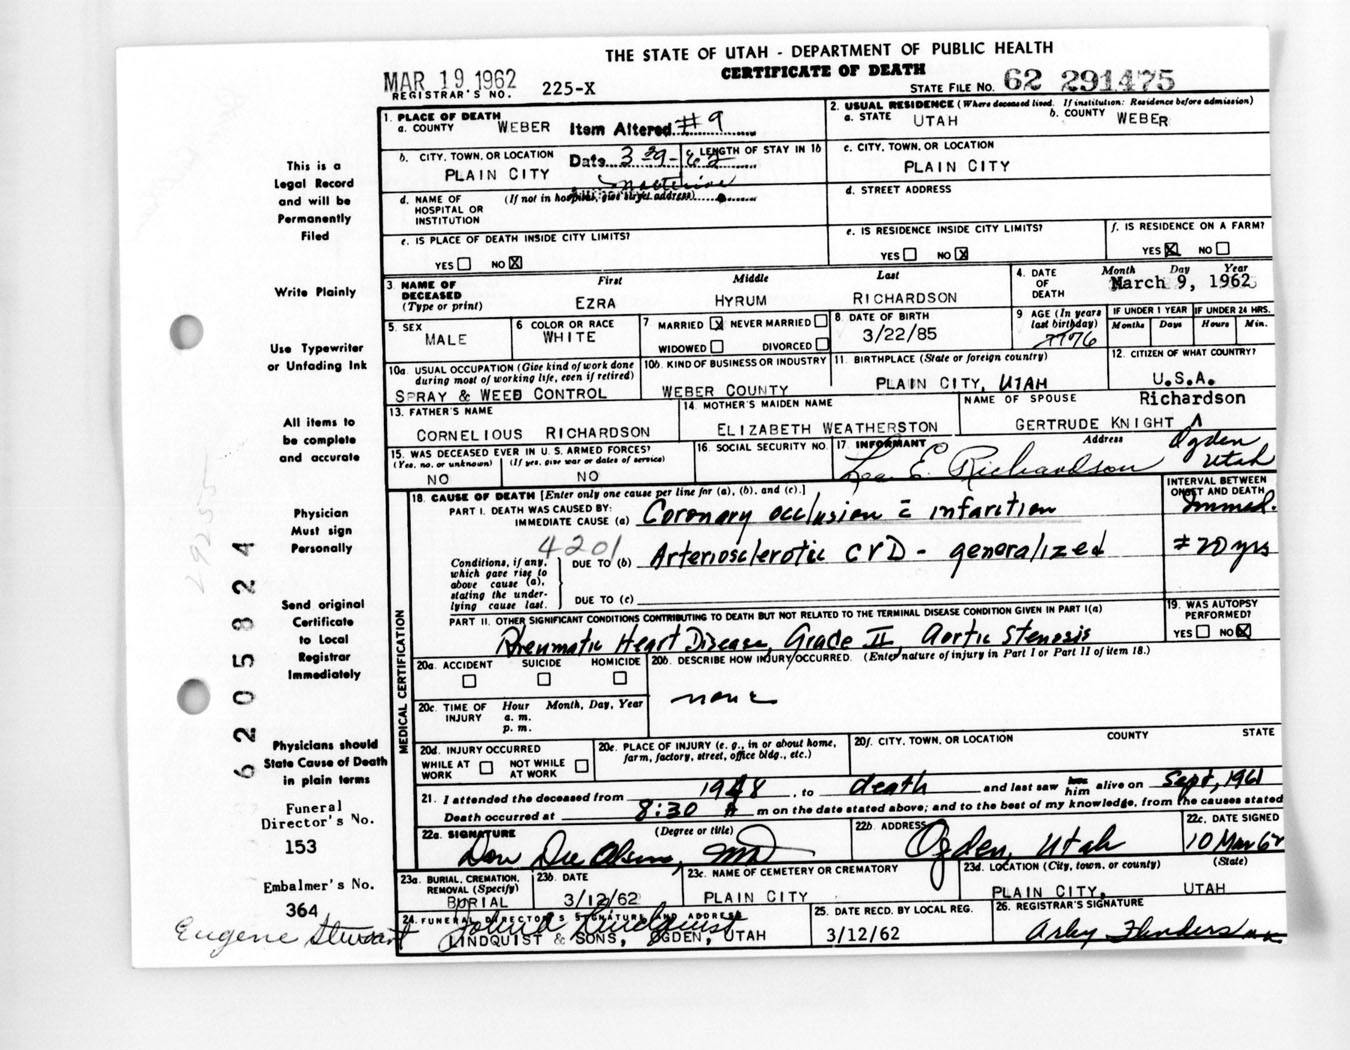 THE STATE OF UTAH - DEPARTMENT OF PUBLIC HEALTH
CERTIFICATE OF DEATH
MAR 19 1962
REGISTRAR'S NO. 225-X
STATE FILE NO. 62 291475
1. PLACE OF DEATH
a. COUNTY WEBER
Item Altered #9
2. USUAL RESIDENCE (Where deceased lived. If institution: Residence before admission)
a. STATE UTAH
b. COUNTY WEBER
b. CITY, TOWN, OR LOCATION
PLAIN CITY
Date 3 29-62
LENGTH OF STAY IN 1b
c. CITY, TOWN, OR LOCATION
PLAIN CITY
d. NAME OF HOSPITAL OR INSTITUTION (If not in hospital, give street address)
d. STREET ADDRESS
e. IS PLACE OF DEATH INSIDE CITY LIMITS?
YES NO X
e. IS RESIDENCE INSIDE CITY LIMITS?
YES NO X
f. IS RESIDENCE ON A FARM?
YES X NO
3. NAME OF DECEASED (Type or print)
First Middle Last
EZRA HYRUM RICHARDSON
4. DATE OF DEATH Month Day Year
March 9, 1962
5. SEX
MALE
6 COLOR OR RACE
WHITE
7 MARRIED X NEVER MARRIED
WIDOWED DIVORCED
8 DATE OF BIRTH
3/22/85
9 AGE (In years last birthday)
76
IF UNDER 1 YEAR IF UNDER 24 HRS.
Months Days Hours Min.
10a. USUAL OCCUPATION (Give kind of work done during most of working life, even if retired)
SPRAY & WEED CONTROL
10b. KIND OF BUSINESS OR INDUSTRY
WEBER COUNTY
11. BIRTHPLACE (State or foreign country)
PLAIN CITY, UTAH
12. CITIZEN OF WHAT COUNTRY?
U.S.A.
13. FATHER'S NAME
CORNELIOUS RICHARDSON
14. MOTHER'S MAIDEN NAME
ELIZABETH WEATHERSTON
NAME OF SPOUSE
Richardson
GERTRUDE KNIGHT ^
15. WAS DECEASED EVER IN U. S. ARMED FORCES?
(Yes, no, or unknown) (If yes, give war or dates of service)
NO NO
16. SOCIAL SECURITY NO.
17. INFORMANT Address
E. Richardson Ogden Utah
18. CAUSE OF DEATH [Enter only one cause per line for (a), (b), and (c).]
INTERVAL BETWEEN ONSET AND DEATH
PART I. DEATH WAS CAUSED BY:
IMMEDIATE CAUSE (a) Coronary occlusion c̄ infarction Immed.
4201
Conditions, if any, which gave rise to above cause (a), stating the underlying cause last.
DUE TO (b) Arteriosclerotic CVD - generalized ± 20 yrs
DUE TO (c)
PART II. OTHER SIGNIFICANT CONDITIONS CONTRIBUTING TO DEATH BUT NOT RELATED TO THE TERMINAL DISEASE CONDITION GIVEN IN PART I(a)
Rheumatic Heart Disease, Grade II Aortic Stenosis
19. WAS AUTOPSY PERFORMED?
YES NO X
MEDICAL CERTIFICATION
20a. ACCIDENT SUICIDE HOMICIDE
20b. DESCRIBE HOW INJURY OCCURRED. (Enter nature of injury in Part I or Part II of item 18.)
none
20c. TIME OF INJURY Hour Month, Day, Year
a. m.
p. m.
20d. INJURY OCCURRED
WHILE AT WORK NOT WHILE AT WORK
20e. PLACE OF INJURY (e. g., in or about home, farm, factory, street, office bldg., etc.)
20f. CITY, TOWN, OR LOCATION COUNTY STATE
21. I attended the deceased from 1948, to death and last saw him alive on Sept, 1961
Death occurred at 8:30 A m on the date stated above; and to the best of my knowledge, from the causes stated
22a. SIGNATURE (Degree or title)
Don Dee Olsen, MD
22b. ADDRESS
Ogden, Utah
22c. DATE SIGNED
10 Mar 62
23a. BURIAL, CREMATION, REMOVAL (Specify)
BURIAL
23b. DATE
3/12/62
23c. NAME OF CEMETERY OR CREMATORY
PLAIN CITY
23d. LOCATION (City, town, or county) (State)
PLAIN CITY, UTAH
24. FUNERAL DIRECTOR'S SIGNATURE AND ADDRESS
LINDQUIST & SONS, OGDEN, UTAH
25. DATE RECD. BY LOCAL REG.
3/12/62
26. REGISTRAR'S SIGNATURE
Arley Flinders
This is a
Legal Record
and will be
Permanently
Filed
Write Plainly
Use Typewriter
or Unfading Ink
All items to
be complete
and accurate
Physician
Must sign
Personally
Send original
Certificate
to Local
Registrar
Immediately
Physicians should
State Cause of Death
in plain terms
Funeral
Director's No.
153
Embalmer's No.
364
Eugene Stewart
6205824
29255